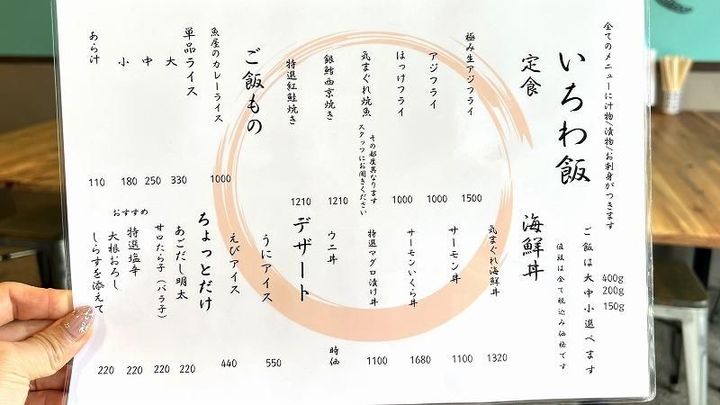 全てのメニューに汁物/漬物/お刺身がつきます
いちわ飯
ご飯は大中小選べます
400g
200g
150g
値段は全て税込み価格です
定食
極み生アジフライ 1500
アジフライ 1000
ほっけフライ 1000
気まぐれ焼魚
その都度異なります
スタッフにお聞きください
銀鱈西京焼き 1210
特選紅鮭焼き 1210
ご飯もの
魚屋のカレーライス 1000
単品ライス
大 330
中 250
小 180
あら汁 110
海鮮丼
気まぐれ海鮮丼 1320
サーモン丼 1100
サーモンいくら丼 1680
特選マグロ漬け丼 1100
ウニ丼 時価
デザート
うにアイス 550
えびアイス 440
ちょっとだけ
あごだし明太 220
サロたら子(バラ子) 220
おすすめ
特選塩辛 220
大根おろし
しらすを添えて 220